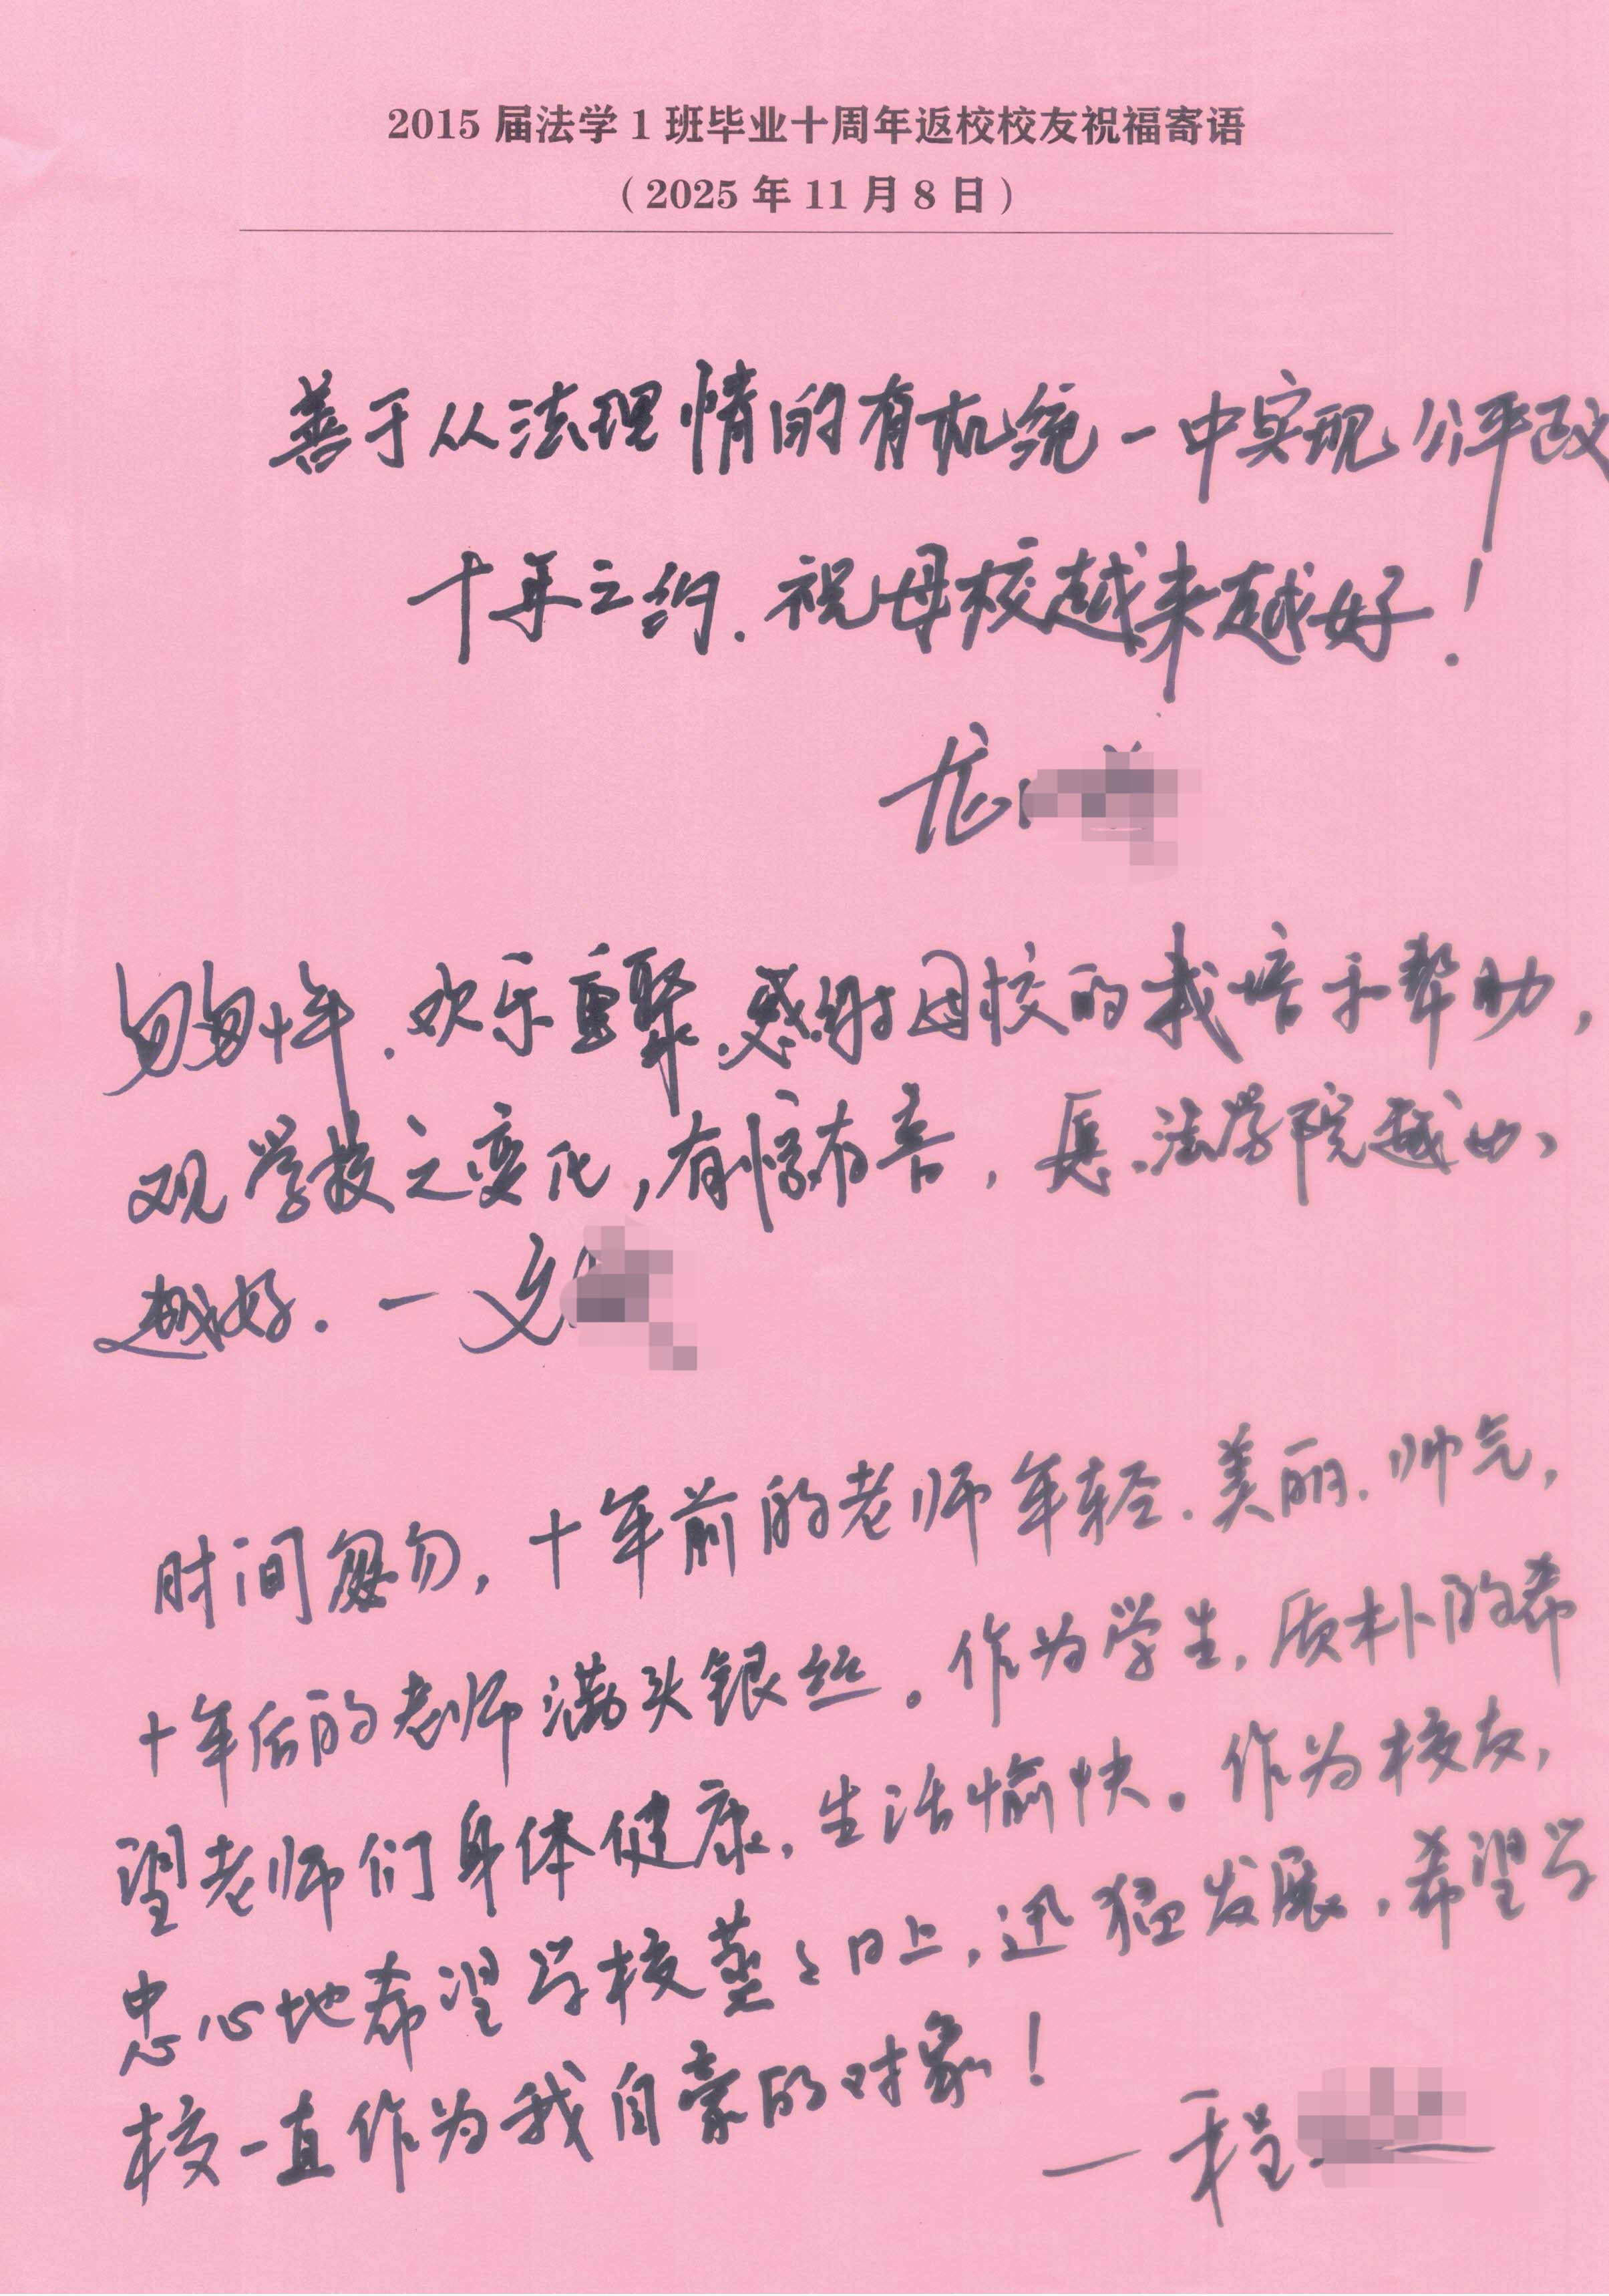 2015届法学1班毕业十周年返校校友祝福寄语
（2025年11月8日）
善于从法理情的有机统一中实现公平正义
十年之约.祝母校越来越好！
龙
匆匆十年.欢乐重聚.感谢母校的栽培和帮助，
观学校之变化，有惊有喜，愿法学院越办、
越好.一文
时间匆匆，十年前的老师年轻.美丽.帅气，
十年后的老师满头银丝。作为学生，质朴的希
望老师们身体健康，生活愉快。作为校友，
忠心地希望学校蒸々日上，迅猛发展，希望学
校一直作为我自豪的对象！
—程